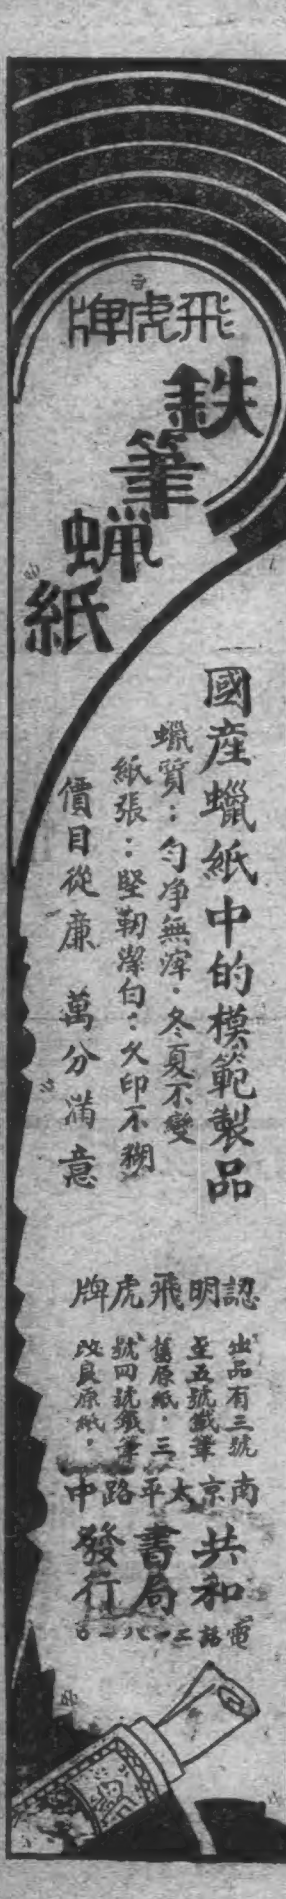 飛虎牌
鉄筆蝋紙
國産蠟紙中的模範製品
蠟質：勻净無滓．冬夏不變
紙張：堅韌潔白：久印不糊
價目從廉 萬分滿意
認明飛虎牌
出品有三號
至五號鐵筆
舊原紙．三
號四號鐵筆
改良原紙．
南京太平路中
共和書局發行
電話二一八一〇